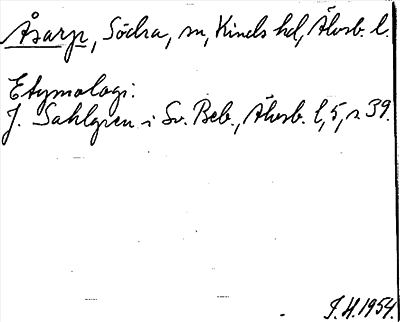 Åsarp, Södra, sn, Kinds hd, Älvsb. l.
Etymologi:
J. Sahlgren i Sv. Beb., Älvsb. l, 5, s 39.
I. H. 1954.